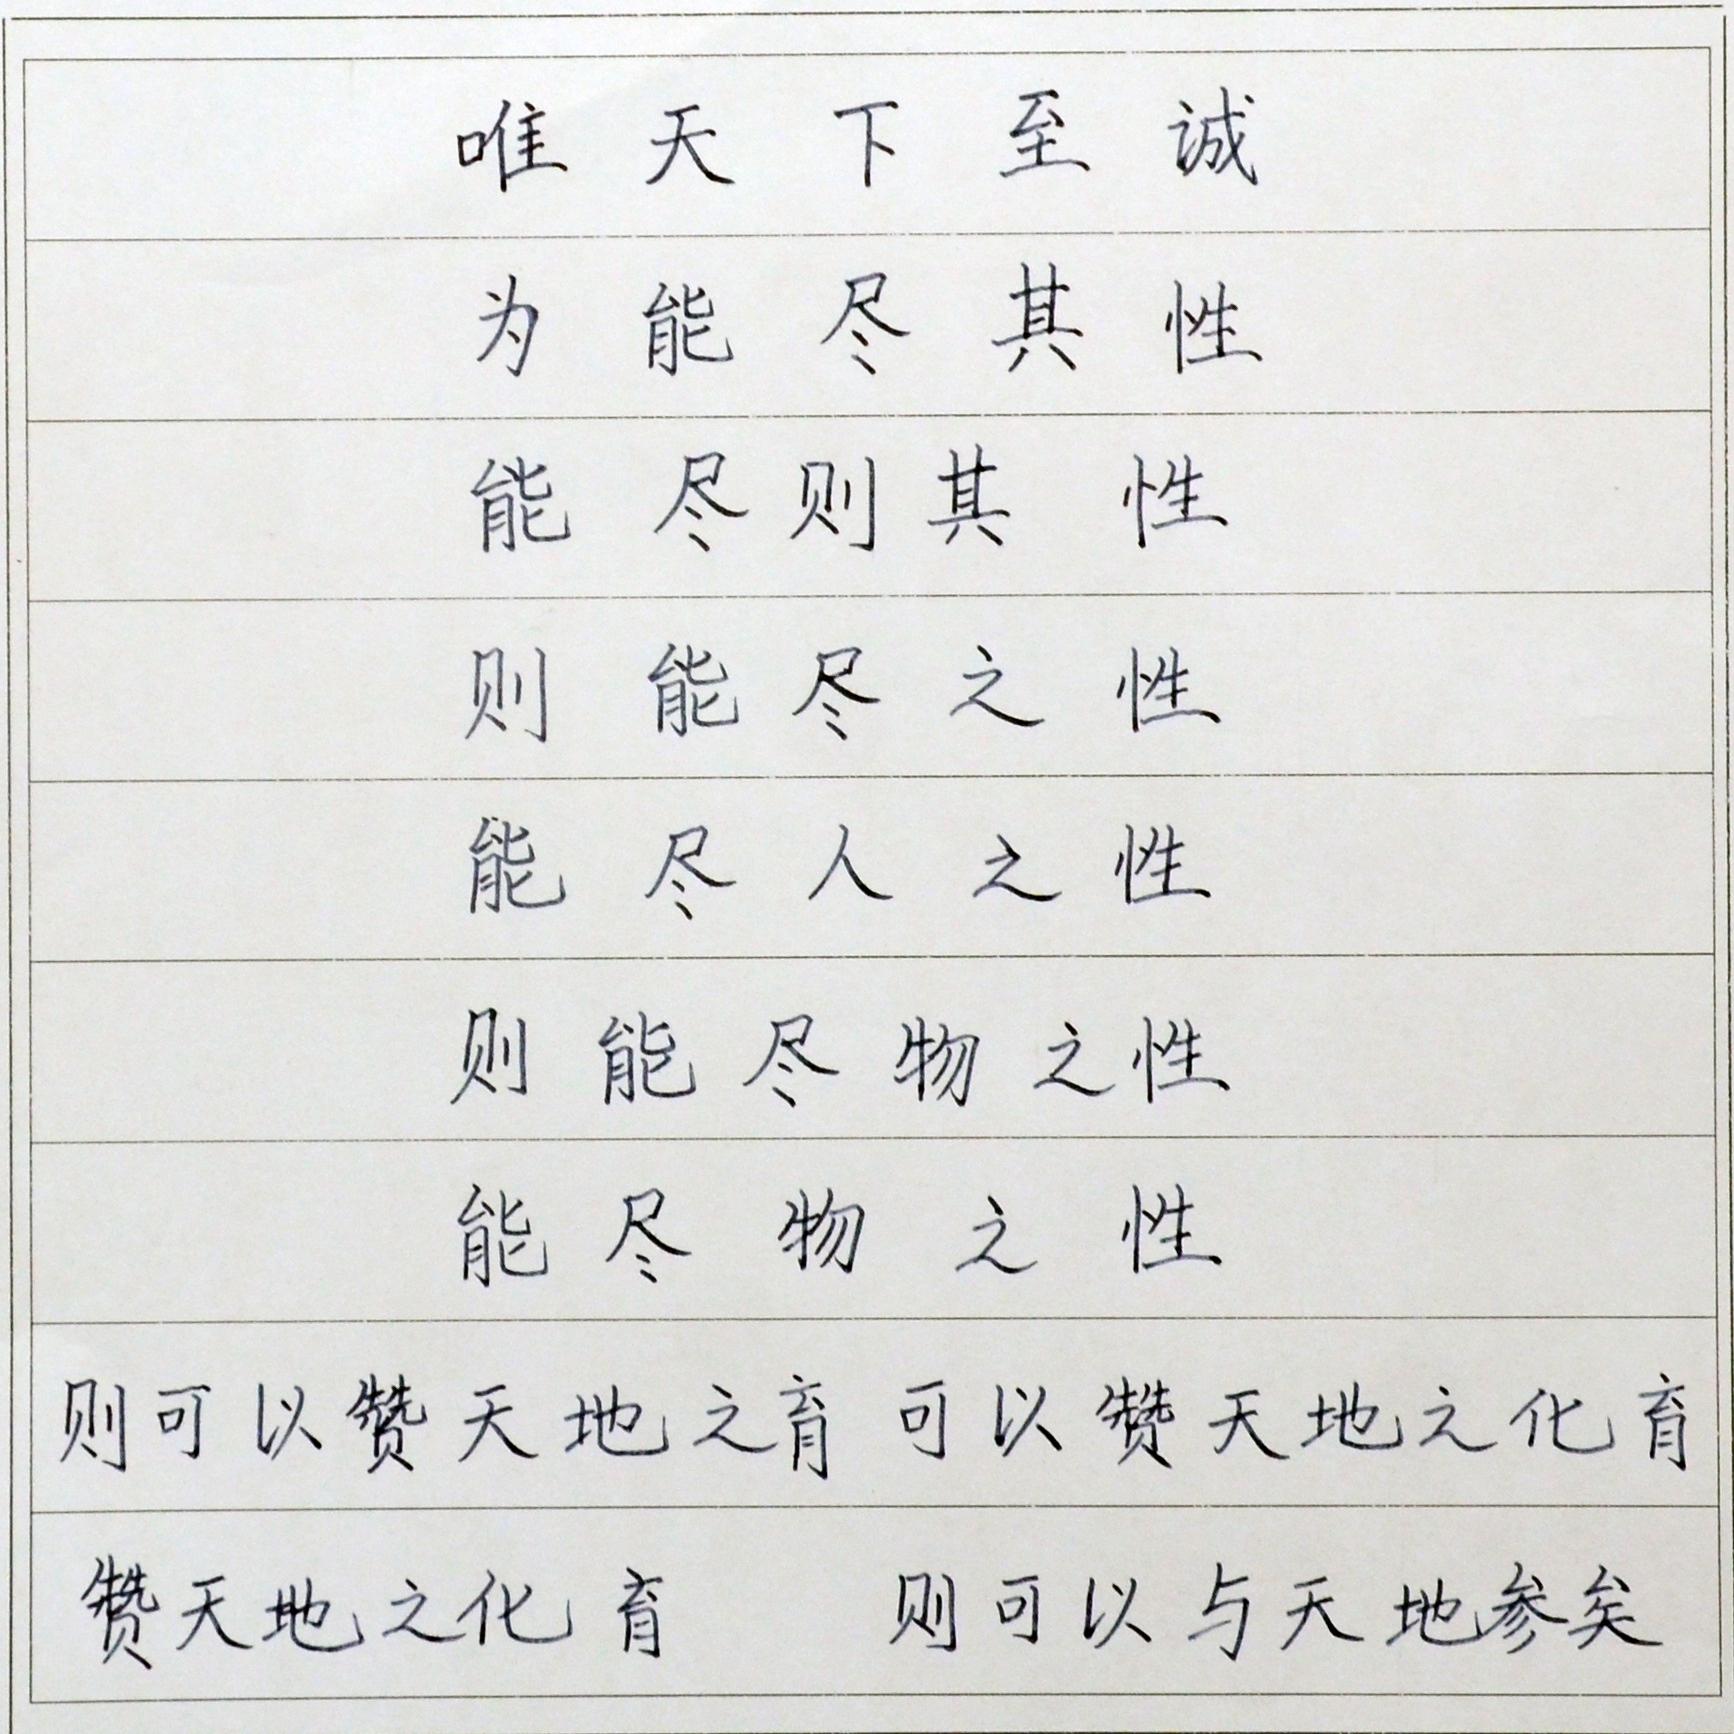 唯天下至诚
为能尽其性
能尽则其性
则能尽之性
能尽人之性
则能尽物之性
能尽物之性
则可以赞天地之育 可以赞天地之化育
赞天地之化育 则可以与天地参矣